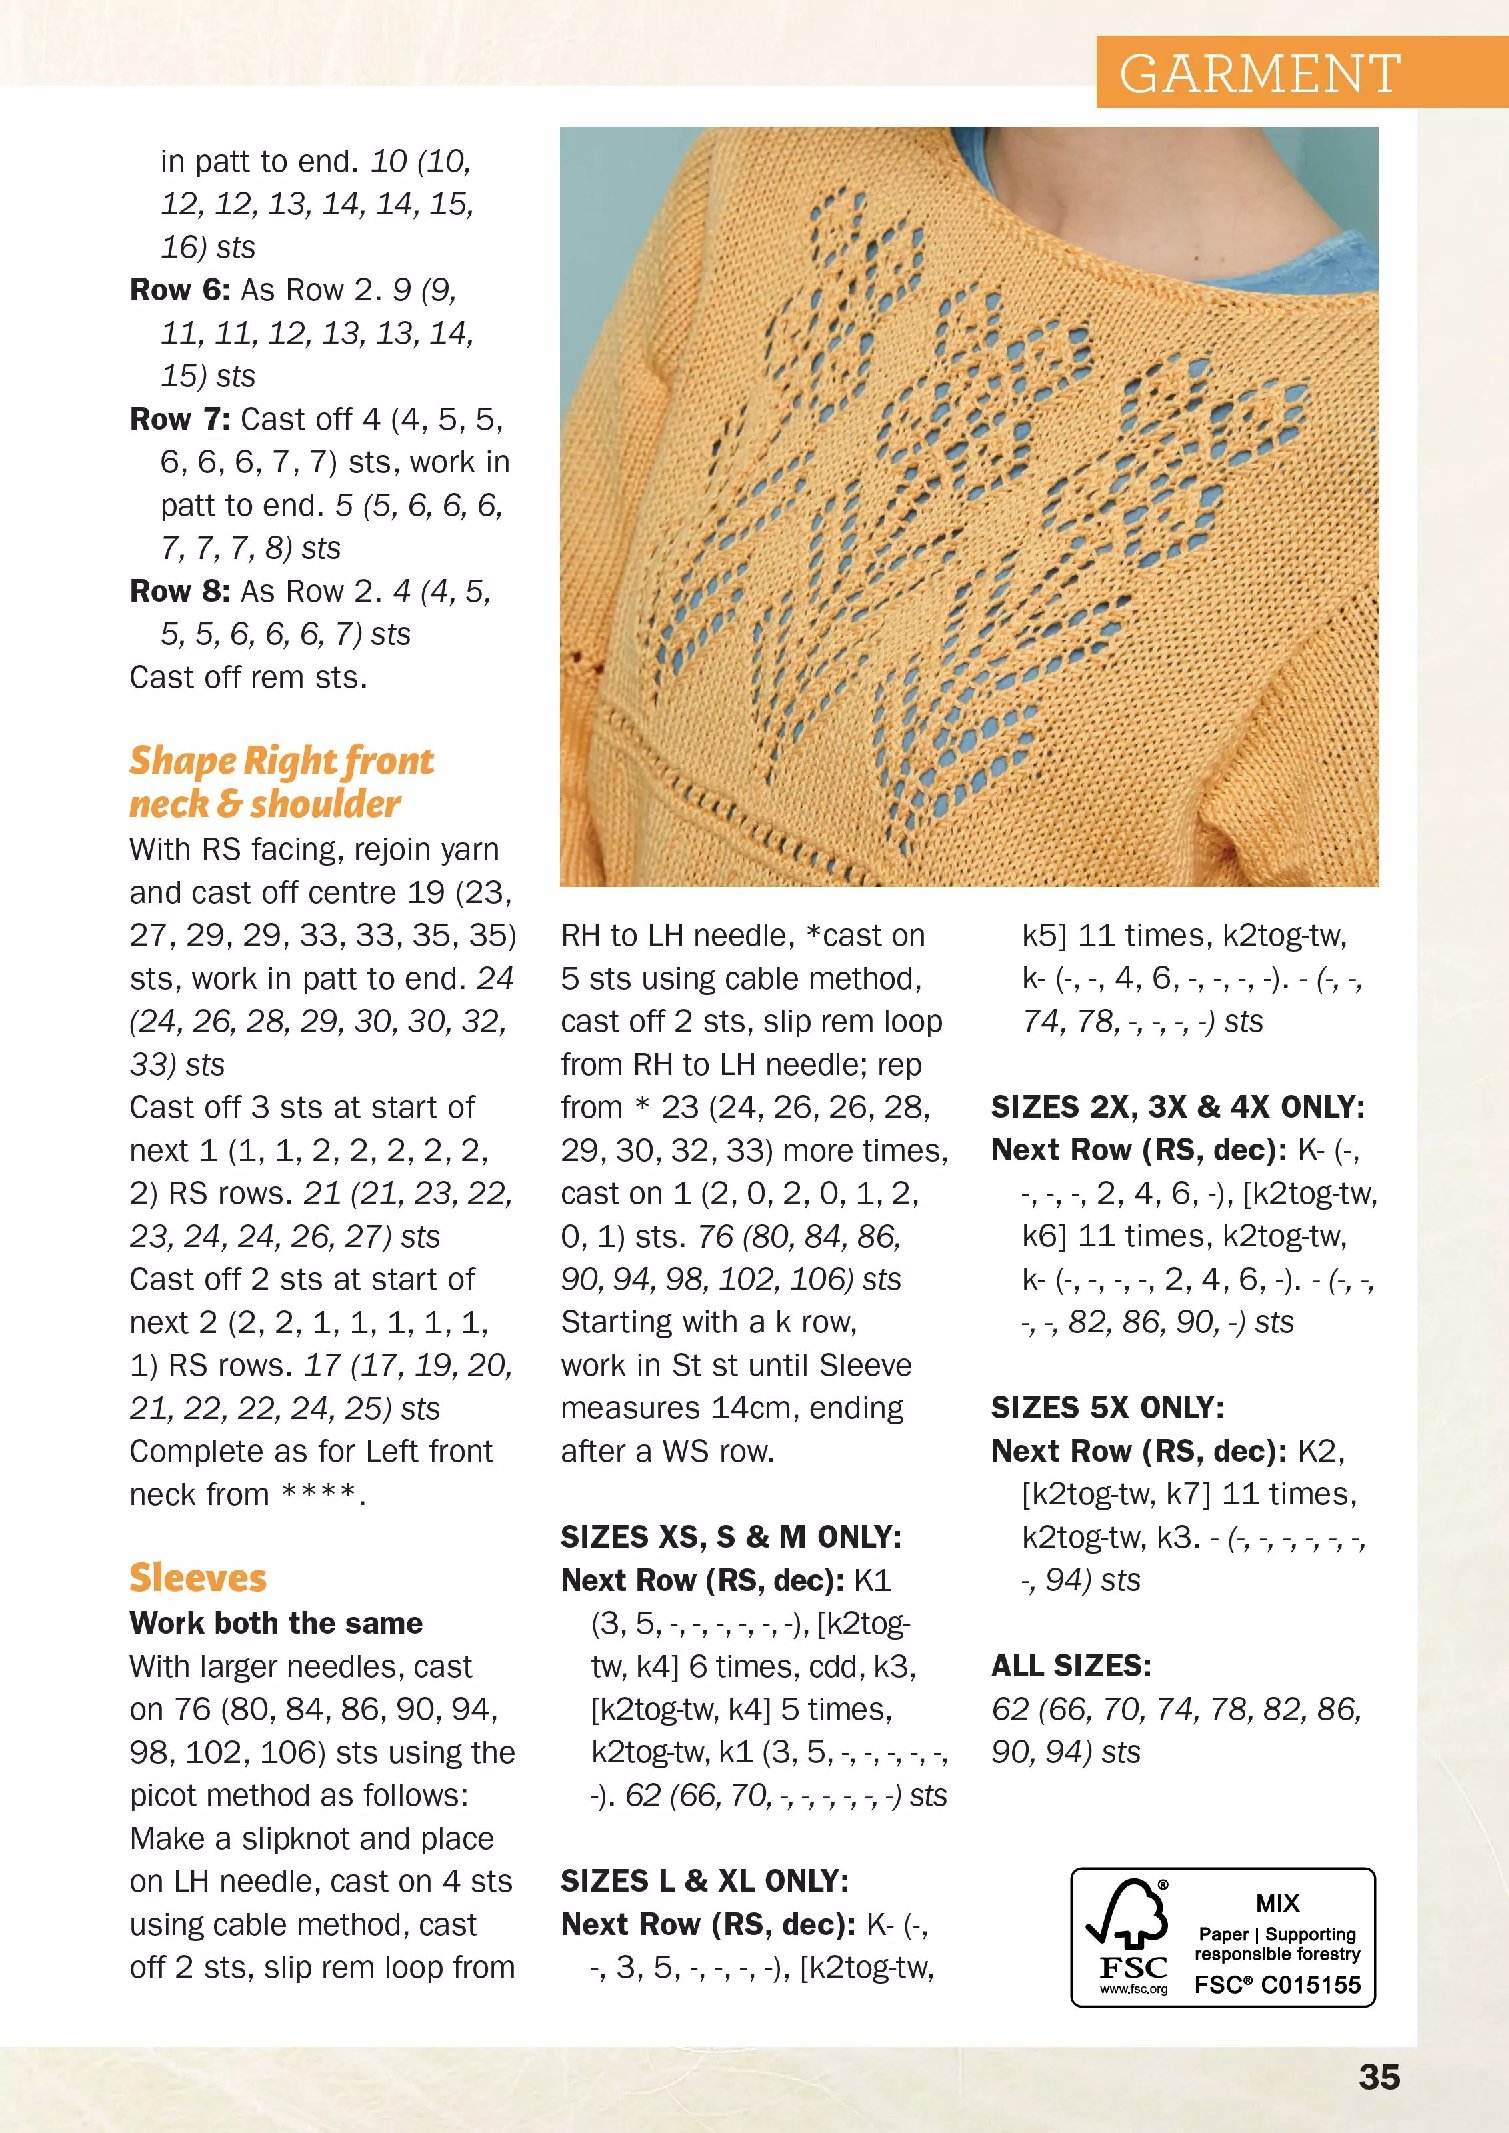 GARMENT
in patt to end. 10 (10,
12, 12, 13, 14, 14, 15,
16) sts
Row 6: As Row 2. 9 (9,
11, 11, 12, 13, 13, 14,
15) sts
Row 7: Cast off 4 (4, 5, 5,
6, 6, 6, 7, 7) sts, work in
patt to end. 5 (5, 6, 6, 6,
7, 7, 7, 8) sts
Row 8: As Row 2. 4 (4, 5,
5, 5, 6, 6, 6, 7) sts
Cast off rem sts.
Shape Right front
neck & shoulder
With RS facing, rejoin yarn
and cast off centre 19 (23,
27, 29, 29, 33, 33, 35, 35)
sts, work in patt to end. 24
(24, 26, 28, 29, 30, 30, 32,
33) sts
Cast off 3 sts at start of
next 1 (1, 1, 2, 2, 2, 2, 2,
2) RS rows. 21 (21, 23, 22,
23, 24, 24, 26, 27) sts
Cast off 2 sts at start of
next 2 (2, 2, 1, 1, 1, 1, 1,
1) RS rows. 17 (17, 19, 20,
21, 22, 22, 24, 25) sts
Complete as for Left front
neck from ****.
Sleeves
Work both the same
With larger needles, cast
on 76 (80, 84, 86, 90, 94,
98, 102, 106) sts using the
picot method as follows:
Make a slipknot and place
on LH needle, cast on 4 sts
using cable method, cast
off 2 sts, slip rem loop from
RH to LH needle, *cast on
5 sts using cable method,
cast off 2 sts, slip rem loop
from RH to LH needle; rep
from * 23 (24, 26, 26, 28,
29, 30, 32, 33) more times,
cast on 1 (2, 0, 2, 0, 1, 2,
0, 1) sts. 76 (80, 84, 86,
90, 94, 98, 102, 106) sts
Starting with a k row,
work in St st until Sleeve
measures 14cm, ending
after a WS row.
SIZES XS, S & M ONLY:
Next Row (RS, dec): K1
(3, 5, -, -, -, -, -, -), [k2tog-
tw, k4] 6 times, cdd, k3,
[k2tog-tw, k4] 5 times,
k2tog-tw, k1 (3, 5, -, -, -, -, -,
-). 62 (66, 70, -, -, -, -, -, -) sts
SIZES L & XL ONLY:
Next Row (RS, dec): K- (-,
-, 3, 5, -, -, -, -), [k2tog-tw,
k5] 11 times, k2tog-tw,
k- (-, -, 4, 6, -, -, -, -). - (-, -,
74, 78, -, -, -, -) sts
SIZES 2X, 3X & 4X ONLY:
Next Row (RS, dec): K- (-,
-, -, -, 2, 4, 6, -), [k2tog-tw,
k6] 11 times, k2tog-tw,
k- (-, -, -, -, 2, 4, 6, -). - (-, -,
-, -, 82, 86, 90, -) sts
SIZES 5X ONLY:
Next Row (RS, dec): K2,
[k2tog-tw, k7] 11 times,
k2tog-tw, k3. - (-, -, -, -, -, -,
-, 94) sts
ALL SIZES:
62 (66, 70, 74, 78, 82, 86,
90, 94) sts
®
FSC
www.fsc.org
MIX
Paper | Supporting
responsible forestry
FSC® C015155
35